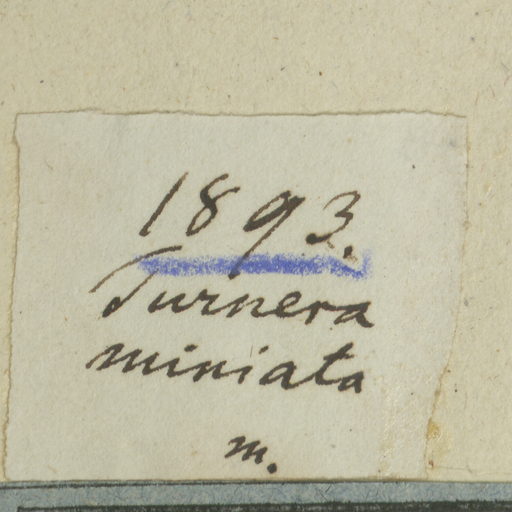 1893.
Turnera
miniata
m.